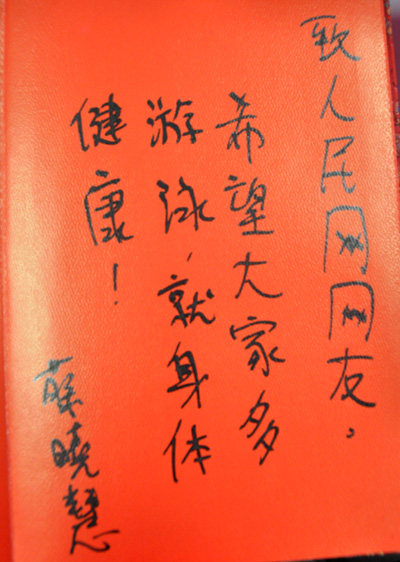 致人民网网友。
希望大家多
游泳，就身体
健康！
蔡曉慧